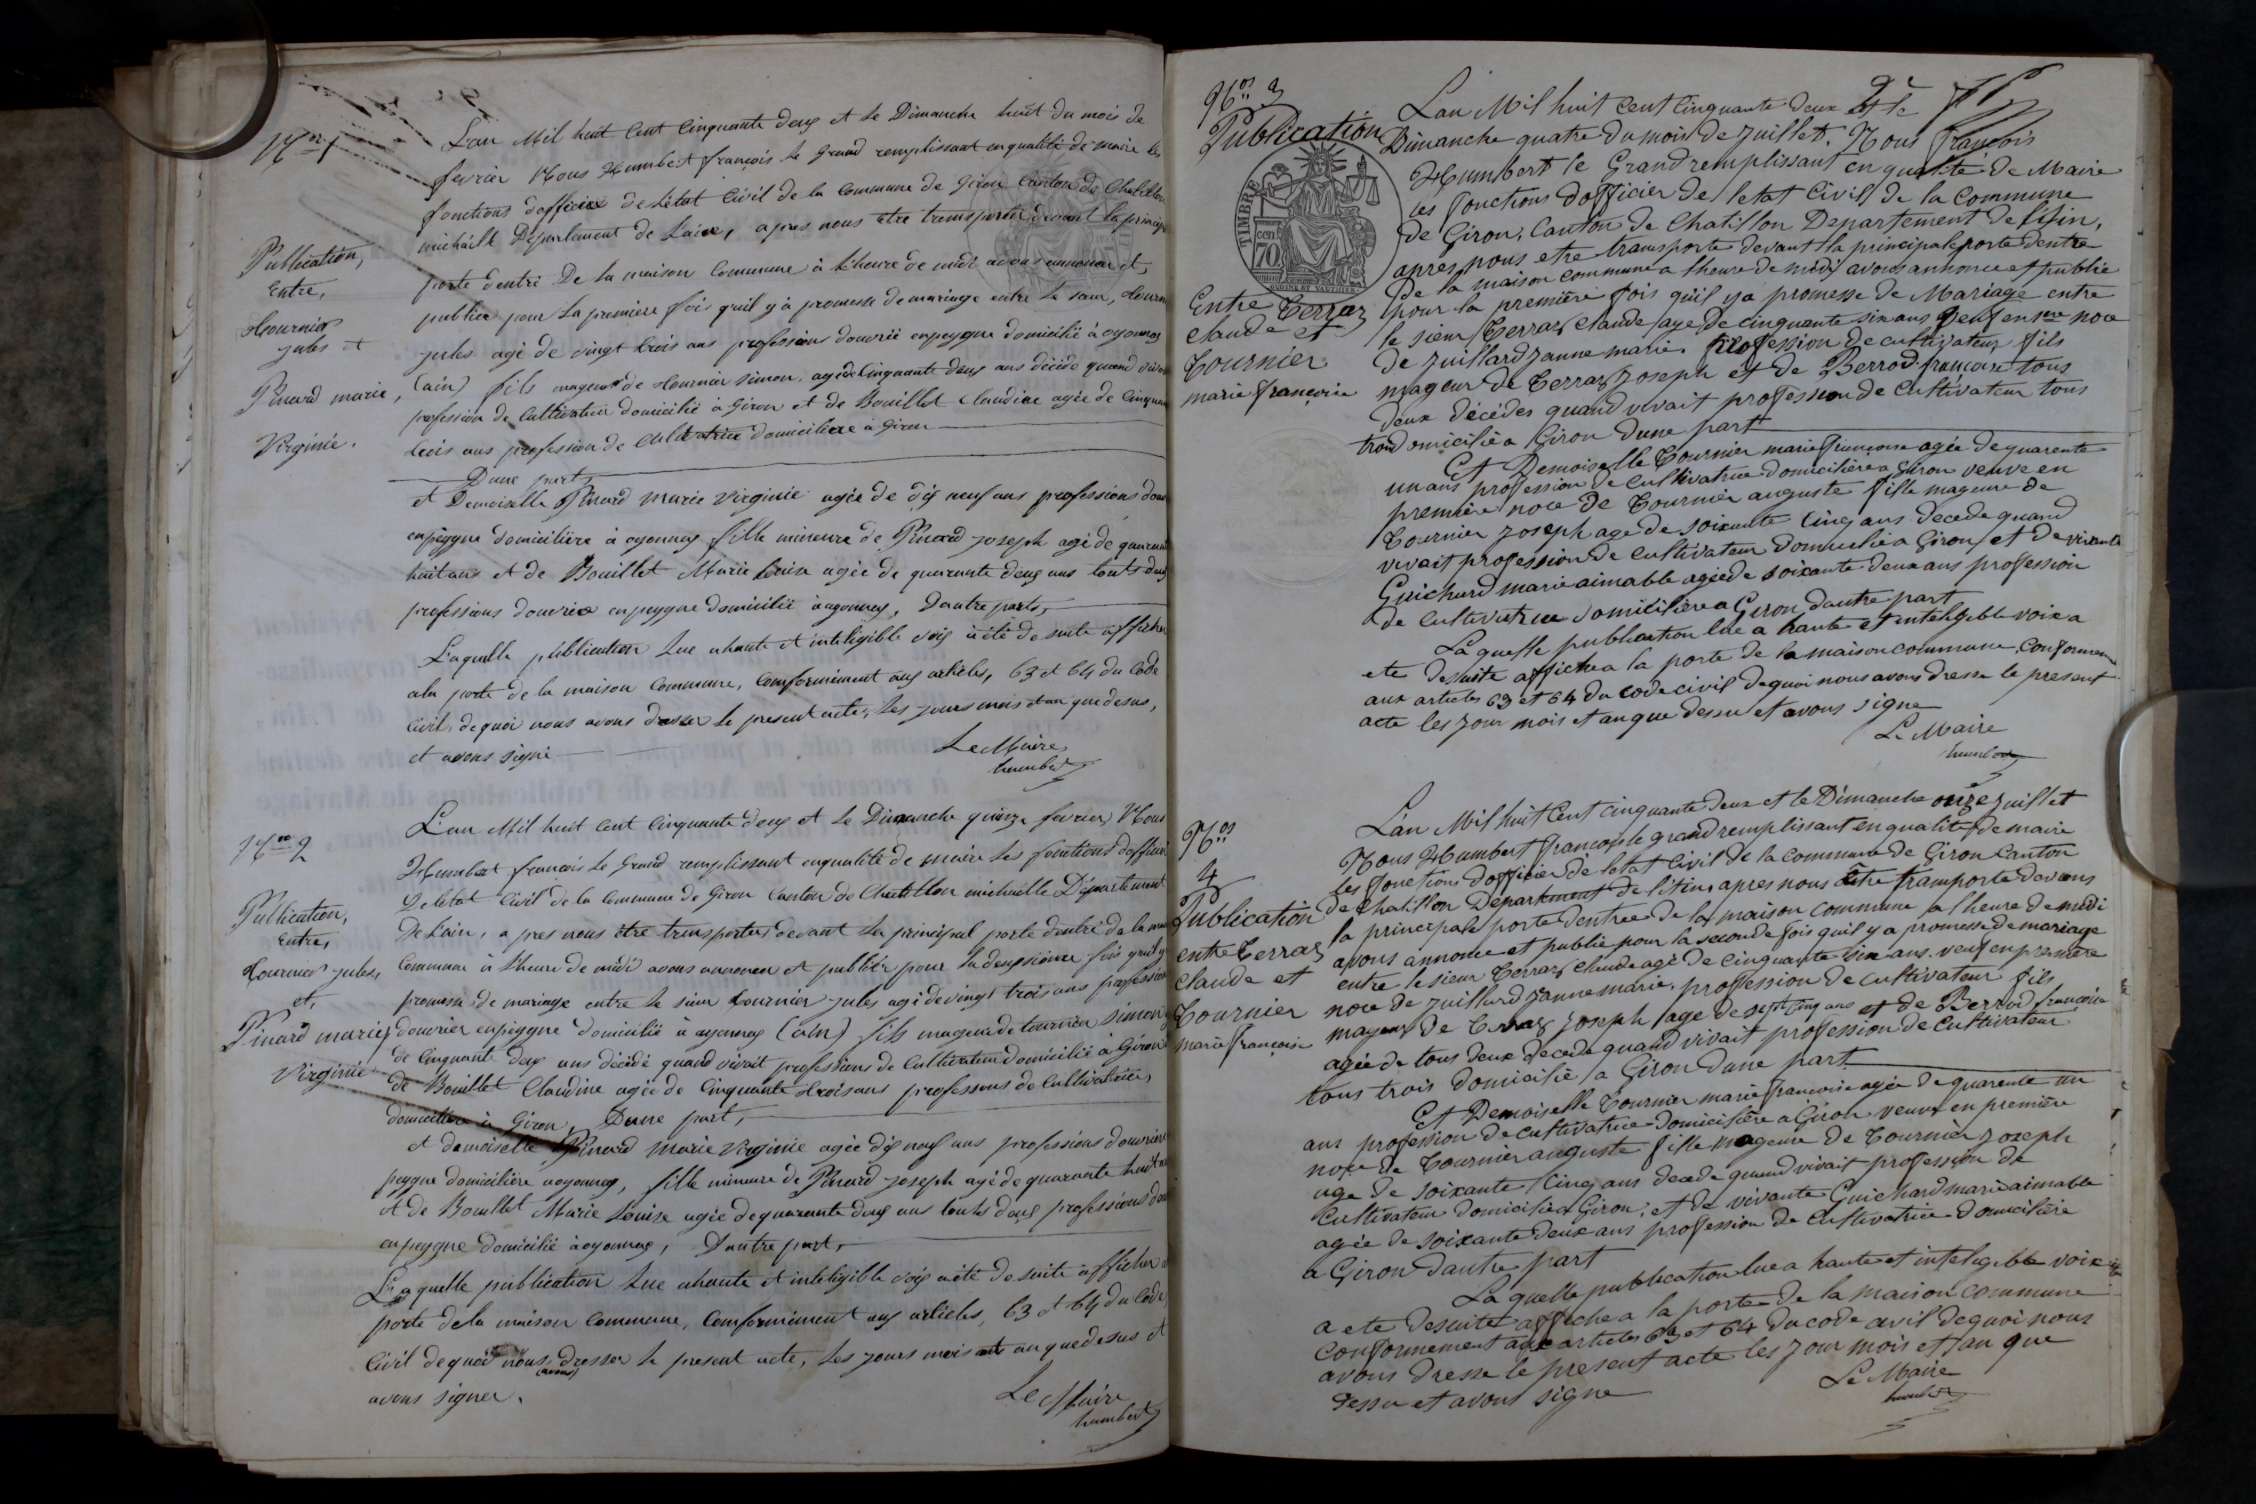 Nos 1
L'an Mil huit Cent Cinquante deux et le Dimanche huit du mois de
fevrier Nous Humbert françois le Grand remplissant enqualité de maire les
fonctions dofficier de létat Civil de la Commune de Giron Canton de Chatillon
michaille Département de Lain, apres nous etre transporter devant la principal
porte dentré De la maison Commune à lheure de midi avons annoncer et
Publication,
Entre,
Tournier
jules et
Pinard marie,
Virginie.
publier pour la premiere fois quil y à promesse de mariage entre le sieur, tournier
jules agé de vingt trois ans professions douvrié enpeygne domicilié à oyonnax
(ain) fils mageur de tournier simon, agé de Cinquante deux ans décédé quand vivait
profession de Cultivateur domicilié à Giron et de Bouillet Claudine agée de Cinquante
trois ans profession de Cultivatrice domiciliere a Giron
Dune part,
et Demoiselle Pinard Marie Virginie agée de dix neuf ans professions douv
enpeygne domicilière à oyonnax fille mineure de Pinard joseph agé de quarante
huit ans et de Bouillet Marie Louise agée de quarante deux ans touts deux
professions douvrier enpeygne domicilié àoyonnax, Dautre part,
Laquelle publication Lue ahaute et inteligible voix àété de suite afficher
ala porte de la maison Commune, Conformément aux articles, 63 et 64 du Code
Civil, dequoi nous avons dresser le present acte, Les jours mois et an quedesus,
et avons signé
Le Maire
humbert
Nos 2
L'an Mil huit Cent Cinquante deux et le Dimanche quinze fevrier, Nous
Humbert françois le Grand remplissant enqualité de maire les fonctions dofficier
De letat Civil de la Commune de Giron Canton de Chatillon michaille Département
De Lain, apres nous être transporter devant la principal porte dentré de la maison
Publication,
Entre,
Tournier jules,
et,
Pinard marie
Virginie
Commune à lheure de midi avons annoncer et publier pour la deuxsieme fois quil y
promesse de mariage entre le sieur tournier jules agé de vingt trois ans profession
douvrier enpeygne domicilié à oyonnax (ain) fils mageur de tournier simon
de Cinquante deux ans décédé quand vivait professions de Cultivateur domicilié à Giron
de Bouillet Claudine agée de Cinquante trois ans professions de Cultivatrice,
domicilière à Giron, Dune part,
et demoiselle Pinard Marie Virginie agée dix neuf ans professions douvriere
peygne domicilière aoyonnax, fille mineure de Pinard joseph agé de quarante huit ans
et de Bouillet Marie Louise agée de quarante deux ans touts deux professions dou
enpeygne domicilié àoyonnax, Dautre part,
Laquelle publication Lue ahaute et inteligible voix àété de suite afficher a
porte dela maison Commune, Conformément aux articles, 63 et 64 du Code
Civil dequoi nous dresser le present acte, Les jours mois et an quedesus et
(avons)
avons signer.
Le Maire
humbert
Nos 3
Publication
TIMBRE
70
Entre Terraz
Claude et
Tournier
marie françoise
Lan Mil huit Cent Cinquante deux Et le
Dimanche quatre du mois de Juillet. Nous françois
Humbert le Grand remplissant en qualité de Maire
les fonctions dofficier de letat Civil de la Commune
de Giron, Canton de Chatillon Departement de l'Ain,
apres nous etre transporte devant la principale porte dentre
De la maison commune a lheure de midi avons annonce et publie
pour la première fois quil y a promesse de Mariage entre
le sieur Terraz Claude age De cinquante six ans veuf en 1ere noce
de Juillard Janne marie. Profession de cultivateur fils
mageur de Terraz Joseph et de Berrod françoise tous
deux décédes quand vivait profession de Cultivateur tous
trois domicilié a Giron Dune part
Et Demoiselle Tournier marie françoise agée de quarente
un ans profession de Cultivatrice domicilière a Giron veuve en
première noce de Tournier auguste fille mageure de
Tournier Joseph age de soixante Cinq ans Decede quand
vivait profession de Cultivateur Domicilie a Giron, et de vivante
Guichard marie aimable agée de soixante deux ans profession
de Cultivatrice domicilière a Giron dautre part
La quelle publication lue a haute et inteligible voix a
ete desuite affiche a la porte de la maison commune, conformement
aux articles 63 et 64 du code civil dequoi nous avons dresse le present
acte les jour mois et an que dessu et avons signe
Le Maire
humbert
Nos
4
Publication
entre Terraz
Claude et
Tournier
marie françoise
Lán Mil huit Cent cinquante deux et le Dimanche onze juillet
Nous Humbert françois le grand remplissant en qualité de maire
les fonctions dofficier dé létat Civil de la Commune de Giron Canton
de Chatillon Departement de l'Ain, apres nous être transporte devans
la principale porte dentree de la maison commune a lheure de midi
avons annonce et publie pour la seconde fois quil y a promesse de mariage
entre le sieur Terraz Claude agé de cinquante six ans. veuf en premiere
noce de Juillard Jannemarie. profession de cultivateur fils
mageur de Terraz Joseph age de sept cinq ans et de Berrod françoise
agée de tous deux decede quand vivait profession de Cultivateur
tous trois domicilié a Giron Dune part
Et Demoiselle Tournier marie francoise agée de quarente un
ans profession de cultivatrice domicilière a Giron veuve en première
noce de Tournier auguste fille mageure de Tournier Joseph
age de soixante Cinq ans decede quand vivait profession de
Cultivateur domicilie a Giron, et de vivante Guichard marie aimable
agée de soixante deux ans profession de Cultivatrice domicilière
a Giron dautre part
La quelle publication lue a haute et inteligible voix
a ete desuite affiche a la porte de la maison commune
conformement aux articles 63 et 64 du code civil dequoi nous
avons dresse le present acte les jour mois et an que
dessu et avons signe
Le Maire
humbert